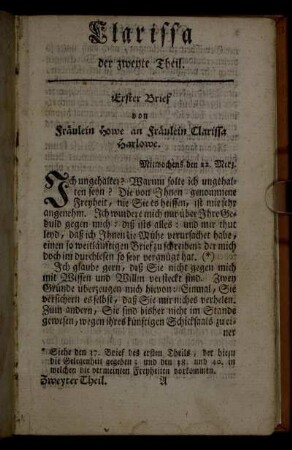 Clarissa
der zweyte Theil.
Erster Brief
von
Fräulein Howe an Fräulein Clarissa
Harlowe.
Mittwochens, den 22. Mertz.
Ich ungehalten? Warum solte ich ungehal-
ten seyn? Die von Ihnen genommene
Freyheit, wie Sie es heissen, ist mir sehr
angenehm. Ich wundere mich nur über Ihre Ge-
duld gegen mich: das ist alles: und mir thut
leyd, daß ich Ihnen die Mühe verursachet habe,
einen so weitläuftigen Brief zu schreiben: der mich
doch im durchlesen so sehr vergnügt hat. (*)
Ich glaube gern, daß Sie nicht gegen mich
mit Wissen und Willen versteckt sind. Zwey
Gründe überzeugen mich hievon: Einmal, Sie
versichern es selbst, daß Sie mir nichts verhelen.
Zum andern, Sie sind bisher nicht im Stande
gewesen, wegen ihres künftigen Schicksals zu ei-
ner
* Siehe den 37. Brief des ersten Theils, der hiezu
die Gelegenheit gegeben: und den 38. und 40. in
welchen die vermeinten Freyheiten vorkommen.
Zweyter Theil. A